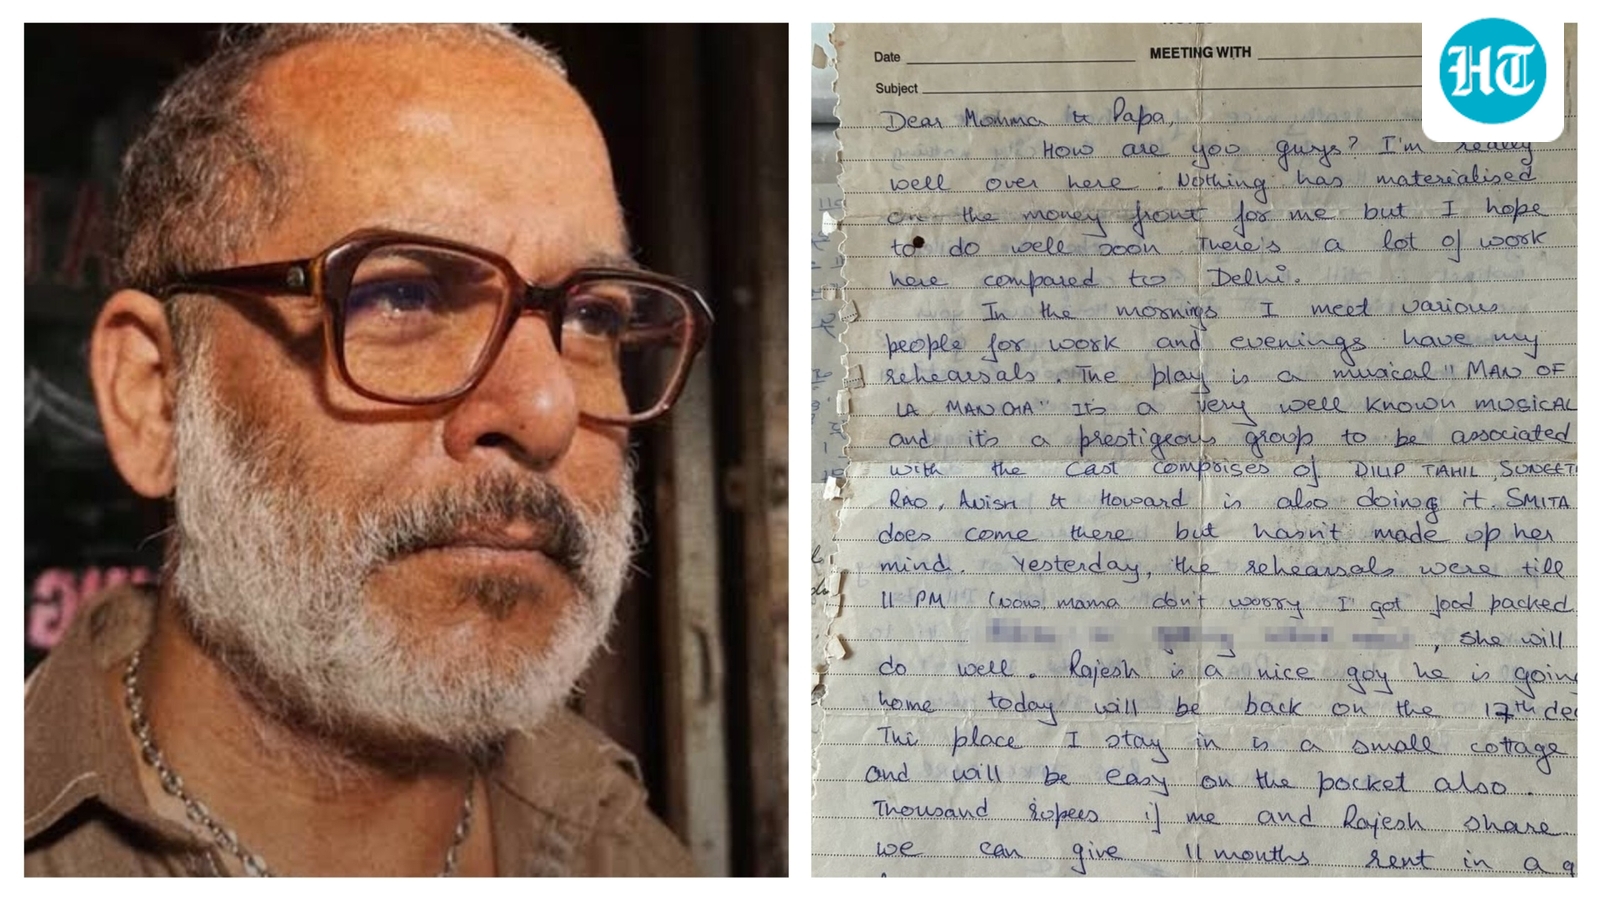 HT
Date
MEETING WITH
Subject
Dear Momma & Papa,
How are you guys? I'm really
well over here. Nothing has materialised
on the money front for me but I hope
to do well soon. There's a lot of work
here compared to Delhi.
In the mornings I meet various
people for work and evenings have my
rehearsals. The play is a musical "MAN OF
LA MANCHA" It's a very well known MUSICAL
and it's a prestigeous group to be associated
with the cast comprises of DILIP TAHIL, SUNEET
RAO, Avish & Howard is also doing it. SMITA
does come there but hasn't made up her
mind. Yesterday, the rehearsals were till
11 PM (now mama don't worry I got food packed
, she will
do well. Rajesh is a nice guy he is going
home today will be back on the 17th dec
The place I stay in is a small cottage
and will be easy on the pocket also.
Thousand rupees if me and Rajesh share
we can give 11 months rent in a